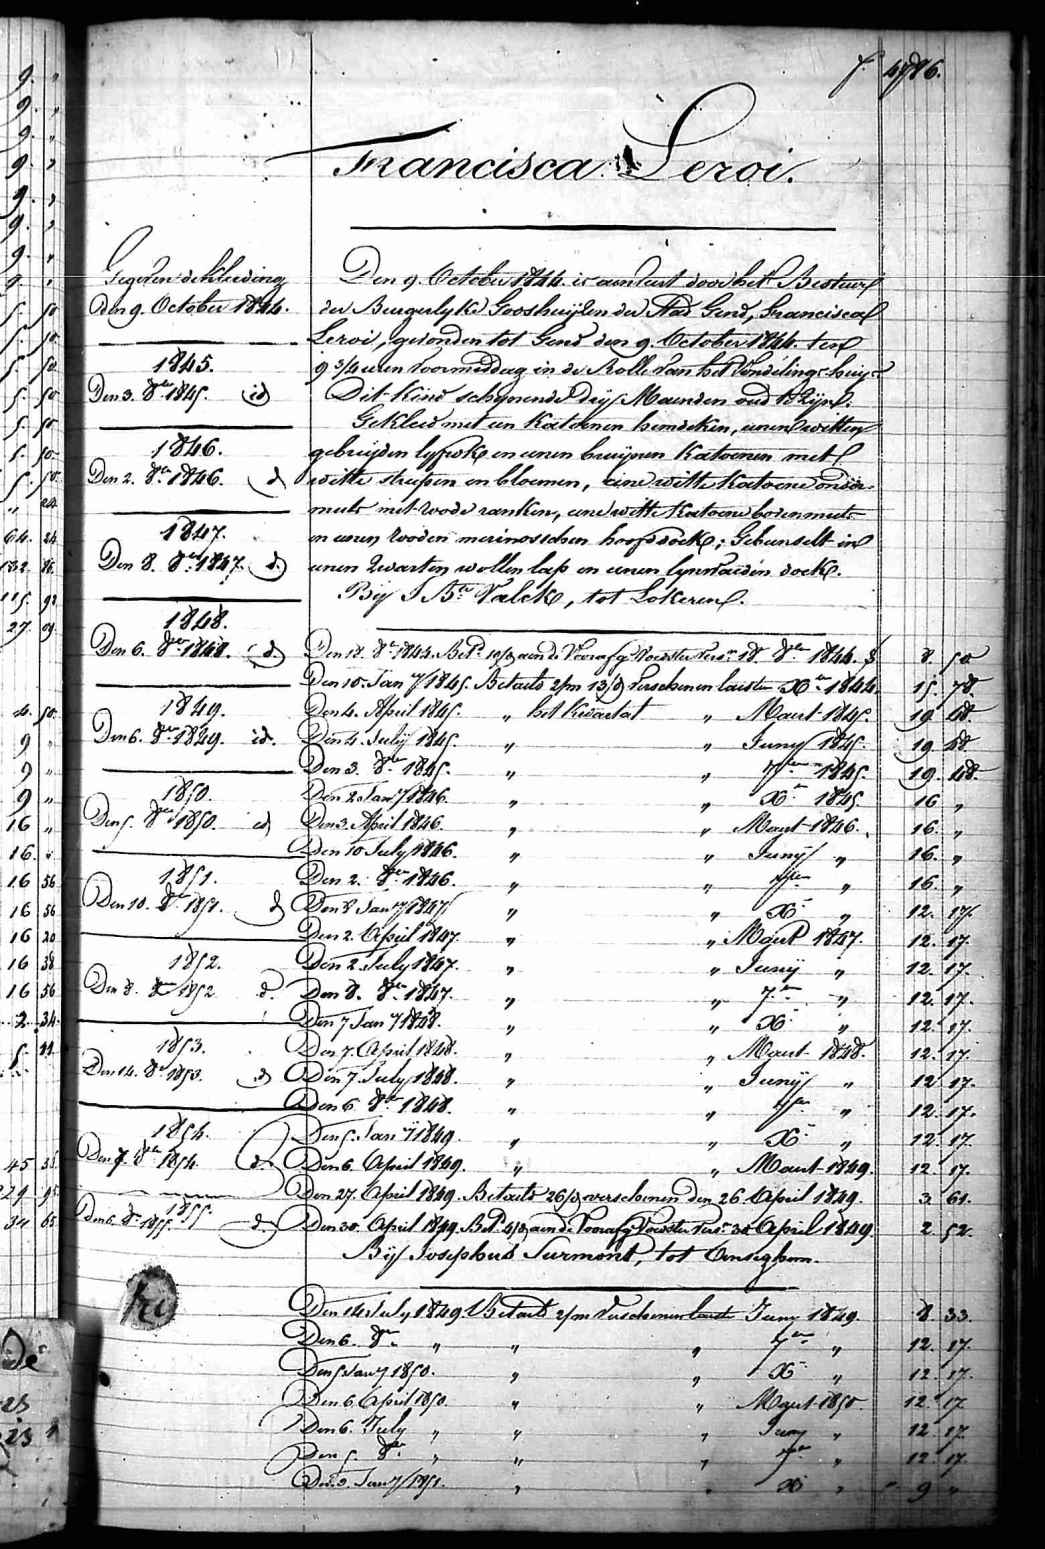 f. 4786.
Francisca Leroi.
Gegeven de kleeding
den 9. October 1844.
1845.
Den 3. 8ber 1845. id
1846.
Den 2. 8er 1846. id
1847.
Den 8. 8er 1847. id
1848.
Den 6. 8er 1848. id
1849.
Den 6. 8er 1849. id.
1850.
Den 5. 8er 1850. id
1851.
Den 10. 8er 1851. id
1852.
Den 8. 8er 1852 id.
1853.
Den 14. 8er 1853. id
1854.
Den 7. 8er 1854. id
1855.
Den 6. 8er 1855. id.
Den 9. October 1844. is aenveert door het Bestuur
der Burgerlyke Godshuyzen der Stad Gend, Francisca
Leroi, gevonden tot Gend den 9. October 1844. ten
9 3/4 uren voormiddag in de Rolle van het Vondelings-huys
Dit kind schynende Dry Maenden oud te zyn.
Gekleed met een katoenen hemdeken, eenen witten
gebreyden lyfrok en eenen bruynen katoenen met
witte streepen en bloemen, eene witte katoene onder-
muts met roode ranken, eene witte katoene bovenmuts
en eenen rooden merinosschen hoofddoek; Gebunselt in
eenen zwarten wollen lap en eenen lynwaeden doek.
By J. Bte Valck, tot Lokeren.
Den 18. 8er 1844. Betd. 10/d aen de Voorafg. Voedster vers. 18. 8ber 1844. 8 50
Den 10. Jany 1845. Betaeld 2/m 13/d verschenen laisten Xer 1844. 15. 78.
Den 4. April 1845. " het kwartal " Maart 1845. 19 48.
Den 4. July 1845. " " Juny 1845. 19 48
Den 3. 8ber 1845. " " 7ber 1845. 19. 48
Den 2 Jany 1846. " " Xr 1845. 16 "
Den 3. April 1846. " " Maart 1846. 16. "
Den 10 July 1846. " " Juny " 16. "
Den 2. 8er 1846. " " 7ber " 16. "
Den 8 Jany 1847 " " Xr " 12. 17.
Den 2. April 1847. " " Maart 1847. 12. 17.
Den 2. July 1847. " " Juny " 12. 17.
Den 8. 8er 1847. " " 7er " 12. 17.
Den 7 Jany 1848. " " Xr " 12. 17.
Den 7. April 1848. " " Maart 1848. 12. 17.
Den 7. July 1848. " " Juny " 12 17.
Den 6. 8er 1848. " " 7ber " 12. 17.
Den 5. Jany 1849. " " Xr " 12. 17
Den 6. April 1849. " " Maart 1849. 12. 17.
Den 27. April 1849. Betaeld 26/d verschenen den 26 April 1849. 3 61.
Den 30. April 1849. Betd. 4/d aen de Voorafg. Voedster vers. 30 April 1849. 2 52.
By Josephus Surmont, tot Onseghem.
Den 14 July 1849. Betaeld 2/m verschenen laeste Juny 1849. 8. 33.
Den 6. 8er " " " 7er " 12. 17.
Den 5 Jany 1850. " " Xr " 12. 17.
Den 6. April 1850. " " Maart 1850. 12. 17
Den 6. July " " " Juny " 12. 17.
Den 5. 8er " " " 7er " 12. 17.
Den 3. Jany 1851. " " Xr " 9 "